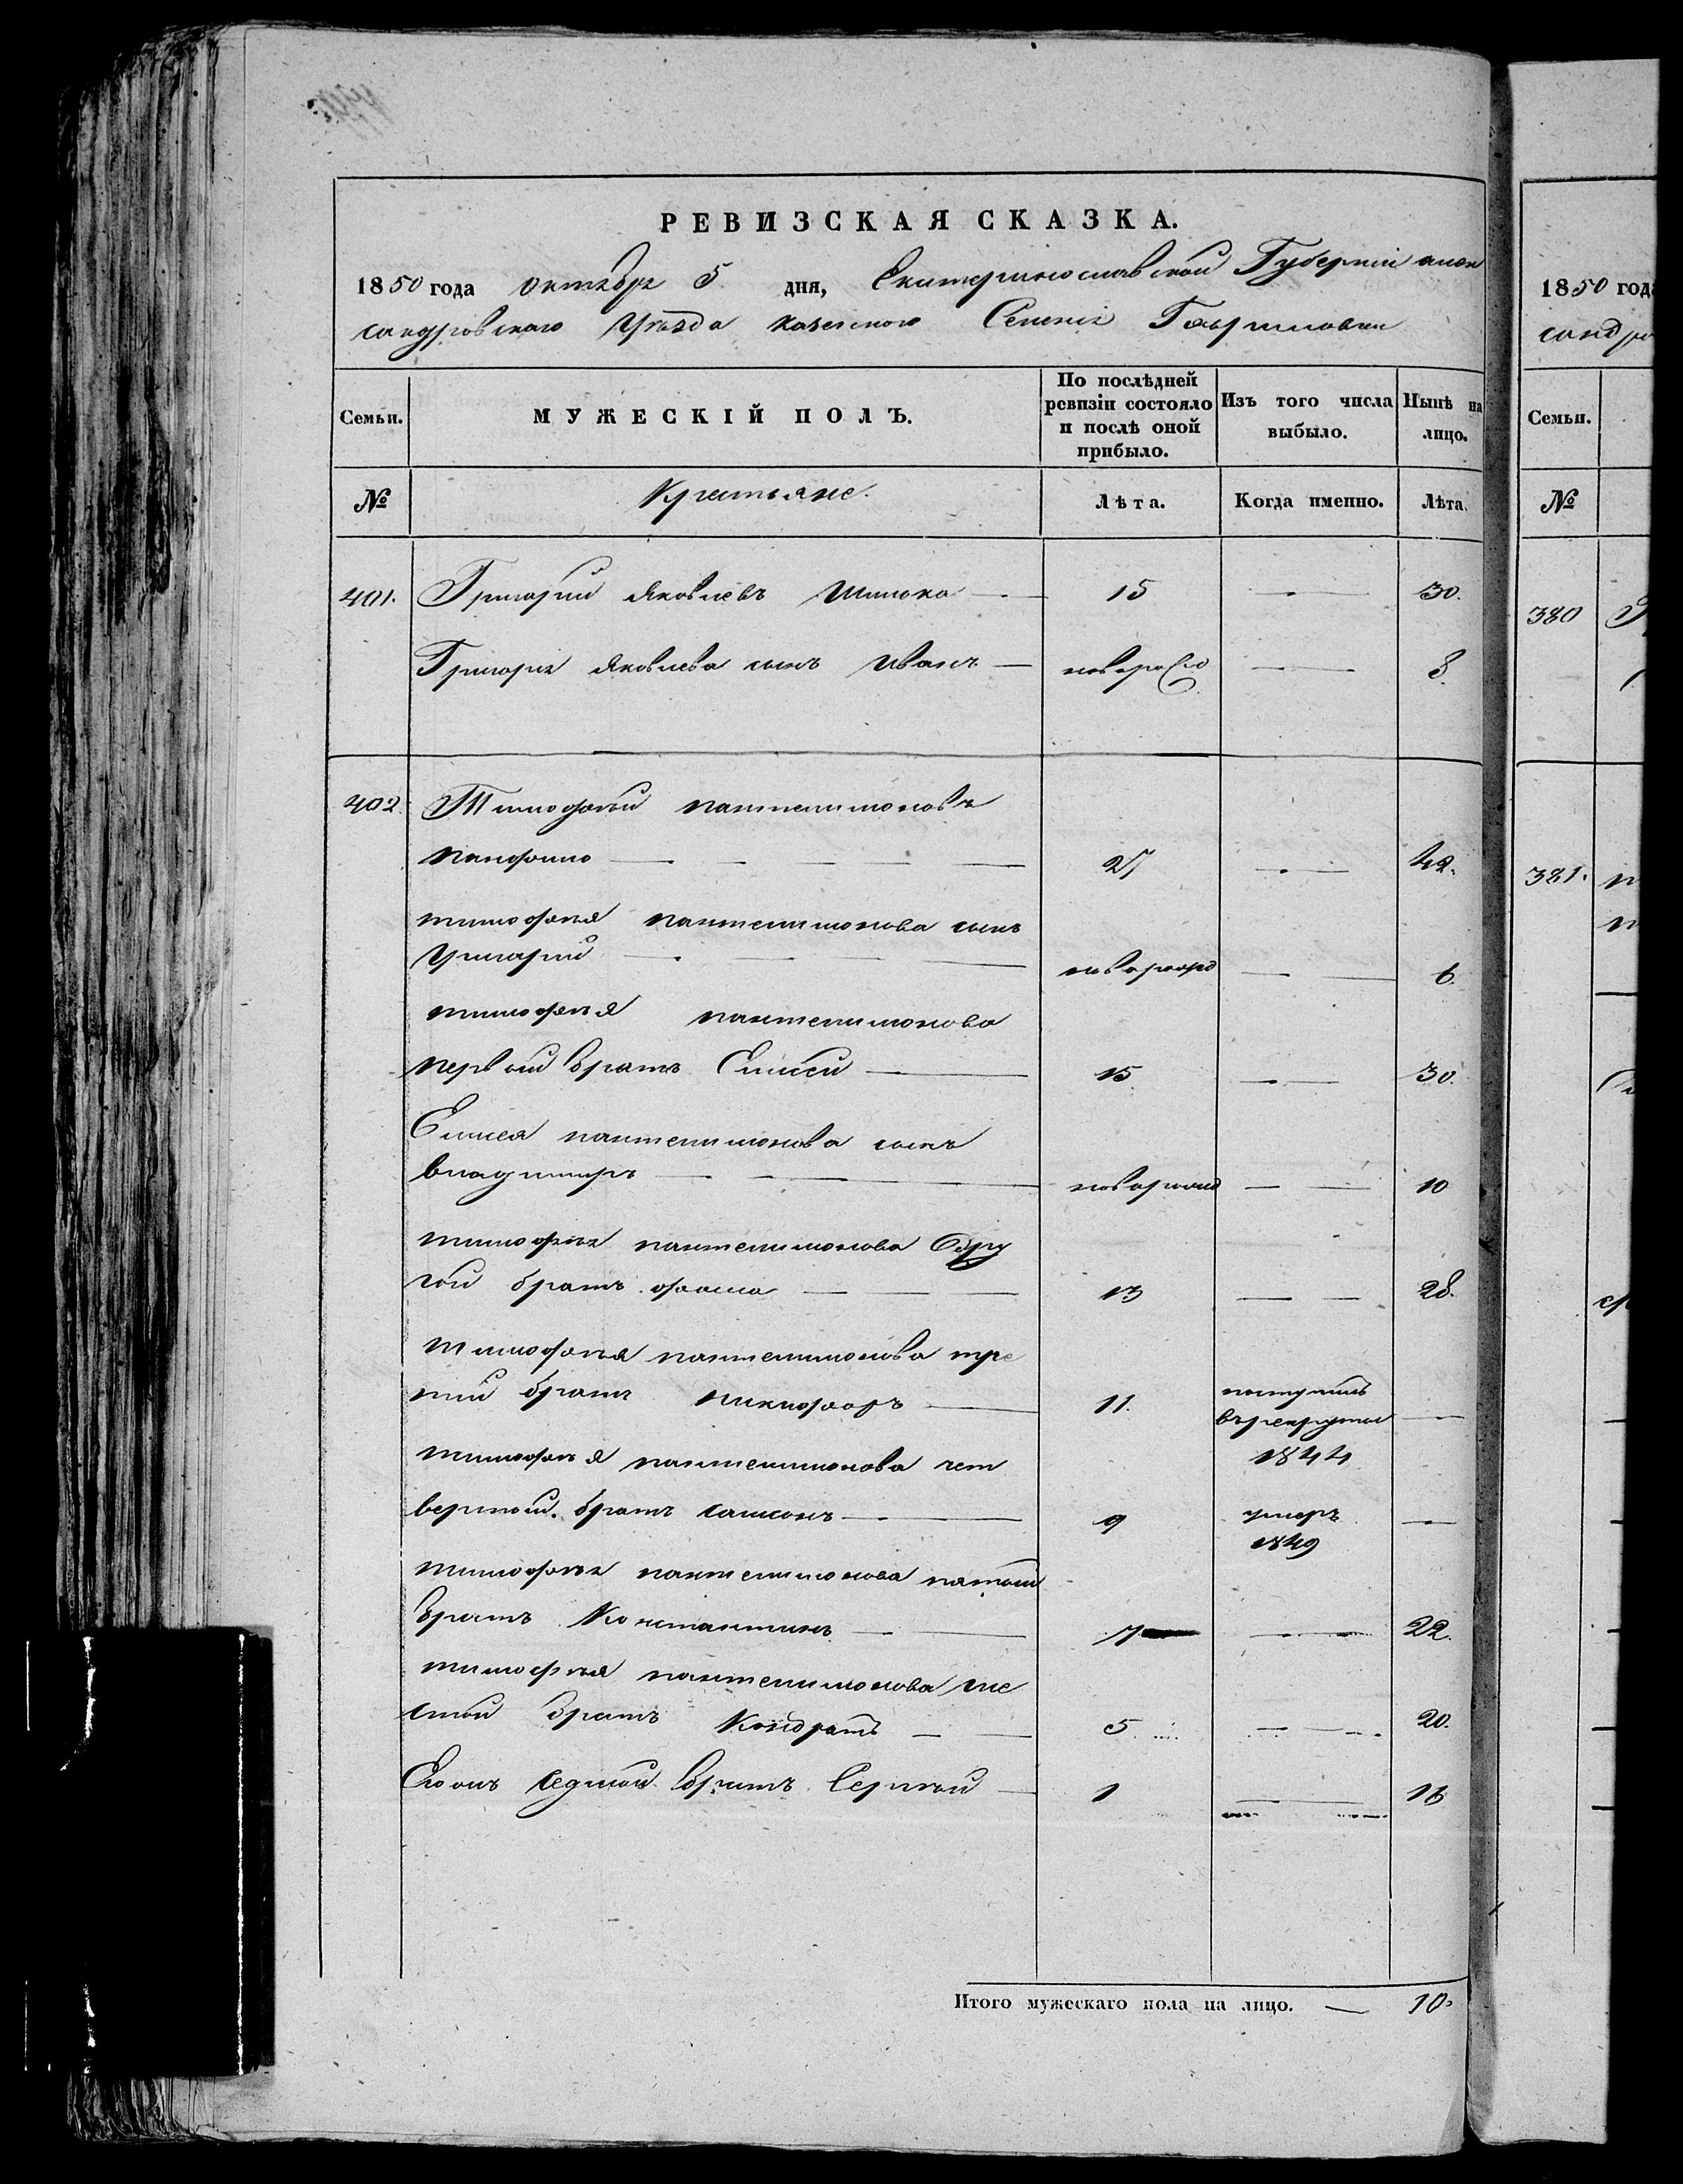 РЕВИЗСКАЯ СКАЗКА.
1850 года октября 5 дня, Екатеринославской Губернии алек
сандровскаго Уѣзда казеннаго Селенія Гавриловки
Семьи. МУЖЕСКІЙ ПОЛЪ. По послѣдней ревизіи состояло и послѣ оной прибыло. Изъ того числа выбыло. Нынѣ на лицо.
№ Крестьяне. Лѣта. Когда именно. Лѣта.
401. Григорій Яковлевъ 15 30.
Григорія Яковлева сынъ Иванъ 8.
402. Тимофѣй пантелимоновъ
27 42.
тимофѣя пантелимонова сынъ
Григорій 6.
тимофѣя пантелимонова
первой братъ Елисей 15 30.
Елисея пантелимонова сынъ
владимиръ новорожд 10
тимофѣя пантелимонова дру
гой братъ фома 13 28.
тимофѣя пантелимонова тре
тий братъ никифоръ 11. поступилъ
в рекруты
1844
тимофѣя пантелимонова чет
вертой братъ самсонъ 9 умеръ
1849
тимофѣя пантелимонова пятой
братъ Константинъ 7 22.
тимофѣя пантелимонова ше
стой братъ Кондратъ 5 20.
Его седмой братъ Сергѣй 1 16
Итого мужескаго пола на лицо. 10
1850 года
сандро
Семьи.
№
380
381.